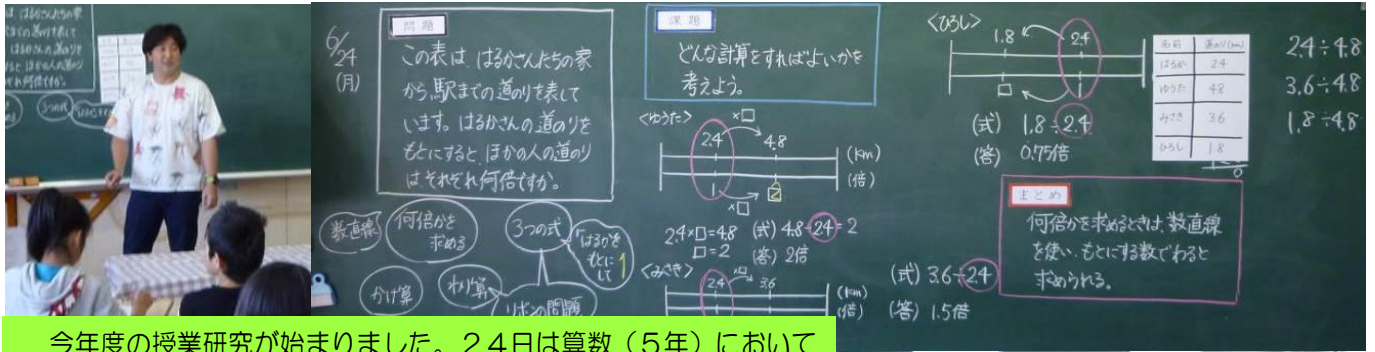 6/24
(月)
問題
この表は、はるかさんたちの家
から、駅までの道のりを表して
います。はるかさんの道のりを
もとにすると、ほかの人の道のり
は、それぞれ何倍ですか。
数直線
何倍かを
求める
3つの式
「はるかを
もとに
して 1
かけ算
わり算
リボンの問題
課題
どんな計算をすればよいかを
考えよう。
<ゆうた>
×□
2.4 4.8
(km)
(倍)
1 2
×□
2.4×□=4.8 (式) 4.8÷2.4=2
□=2 (答) 2倍
<みさき>
×□
2.4 3.6
(km)
(倍)
(式) 3.6÷2.4
(答) 1.5倍
<ひろし>
1.8 2.4
□ 1
(式) 1.8÷2.4
(答) 0.75倍
名前 道のり(km)
はるか 2.4
ゆうた 4.8
みさき 3.6
ひろし 1.8
2.4÷4.8
3.6÷4.8
1.8÷4.8
まとめ
何倍かを求めるときは、数直線
を使い、もとにする数でわると
求められる。
今年度の授業研究が始まりました。24日は算数(5年)において